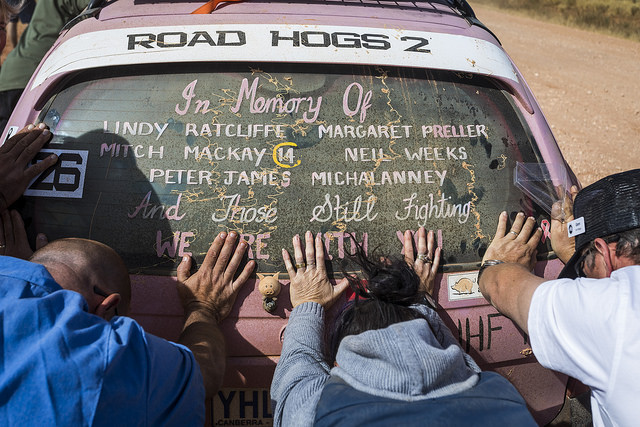 ROAD HOGS 2
In Memory Of
LINDY RATCLIFFE MARGARET PRELLER
MITCH MACKAY 14 NEIL WEEKS
PETER JAMES MICHALANNEY
26
And Those Still Fighting
WE RE ITH
HF
YHL
CANBERRA